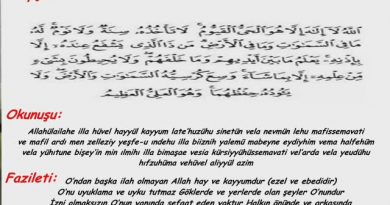 اللهُ لَا إِلَهَ إِلَّا هُوَ الْحَيُّ الْقَيُّومُ لَا تَأْخُذُهُ سِنَةٌ وَلَا نَوْمٌ لَهُ
مَا فِي السَّمَوَاتِ وَمَا فِي الْأَرْضِ مَنْ ذَا الَّذِي يَشْفَعُ عِنْدَهُ إِلَّا
بِإِذْنِهِ يَعْلَمُ مَا بَيْنَ أَيْدِيهِمْ وَمَا خَلْفَهُمْ وَلَا يُحِيطُونَ بِشَيْءٍ
مِنْ عِلْمِهِ إِلَّا بِمَا شَاءَ وَسِعَ كُرْسِيُّهُ السَّمَوَاتِ وَالْأَرْضَ وَلَا
يَئُودُهُ حِفْظُهُمَا وَهُوَ الْعَلِيُّ الْعَظِيمُ
Okunuşu:
Allahülailahe illa hüvel hayyül kayyum late'huzühu sinetün vela nevmün lehu mafissemavati
ve mafil ardı men zelleziy yeşfe-u ındehu illa biiznih yalemü mabeyne eydiyhim vema halfehüm
vela yühıtune bişey'in min ilmihi illa bimaşae vesia kürsiyyühüssemavati vel'arda vela yeudühu
hıfzuhüma vehüvel aliyyül azim
Fazileti:
O'ndan başka ilah olmayan Allah hay ve kayyumdur (ezel ve ebedidir)
O'nu uyuklama ve uyku tutmaz Göklerde ve yerlerde olan şeyler O'nundur
İzni olmaksızın O'nun yanında şefaat eden yoktur Halkın önünde ve arkasında